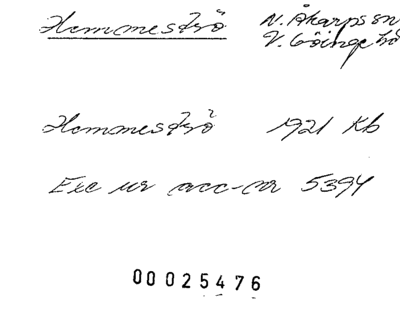 Hemmeströ N. Åkarps sn
V. Göinge hd
Hemmeströ 1921 Kb
Exc ur acc-nr 5394
00025476